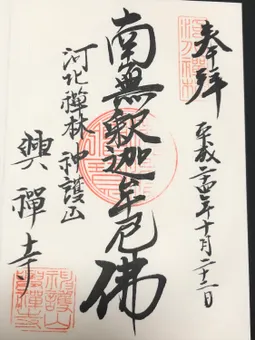 奉拝
平成二四年十月二十二日
南無釋迦牟尼佛
河北禪林神護山
興禪寺
神護山
興禪寺